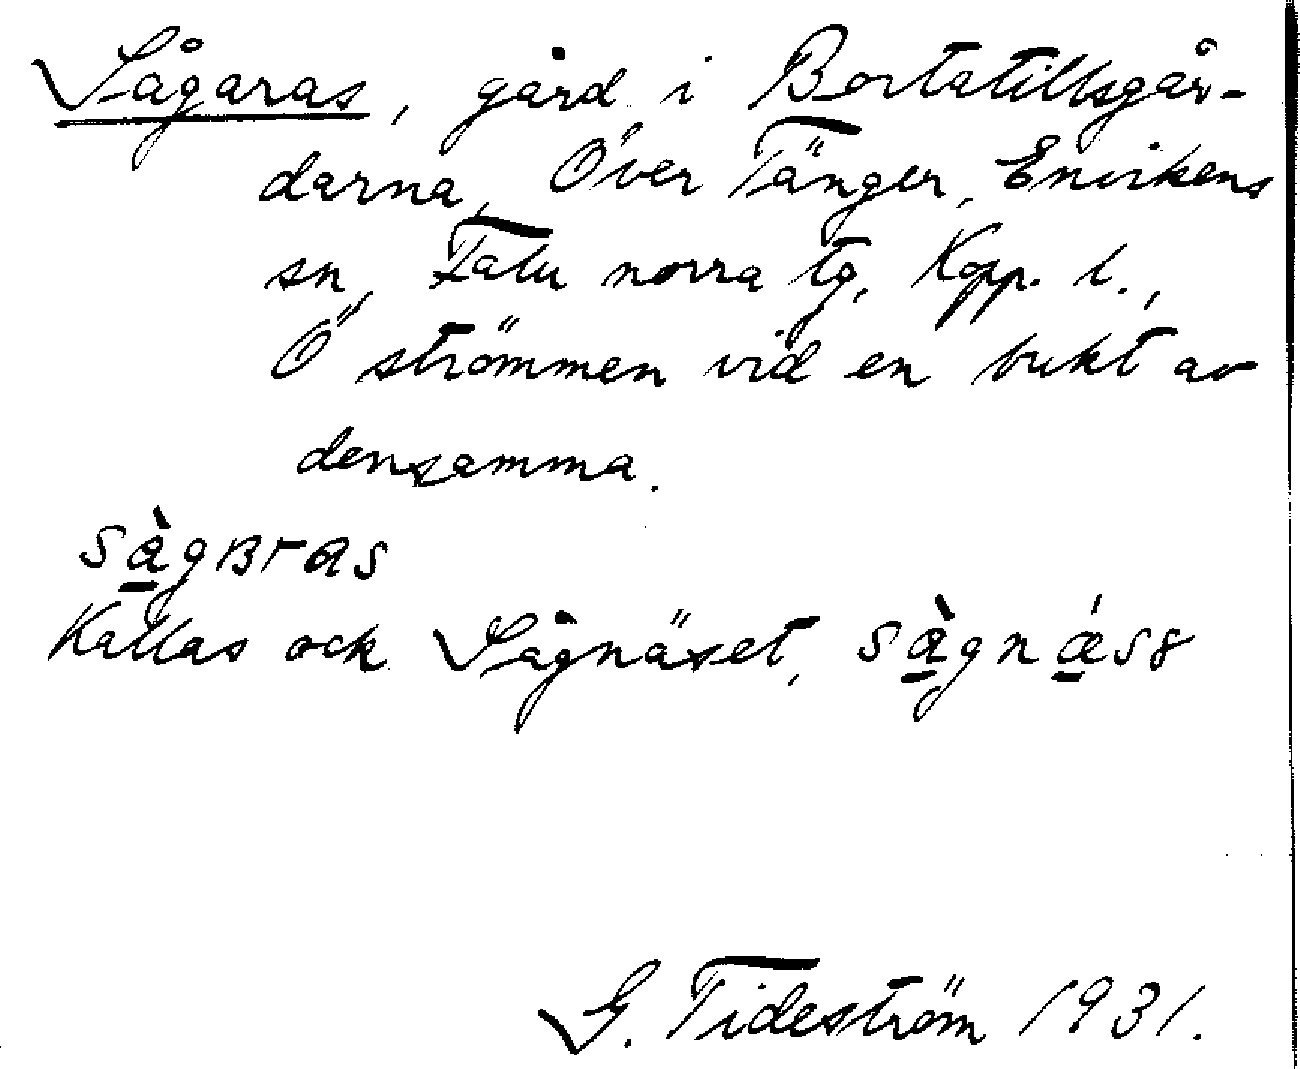 Sågaras, gård i Bortatillsgår-
darna, Över Tänger, Envikens
sn, Falu norra tg, Kopp. l.,
Ö strömmen vid en bukt av
densamma.
sàgʙras
Kallas ock Sågnäset, sàgnǽsə
G. Tideström 1931.